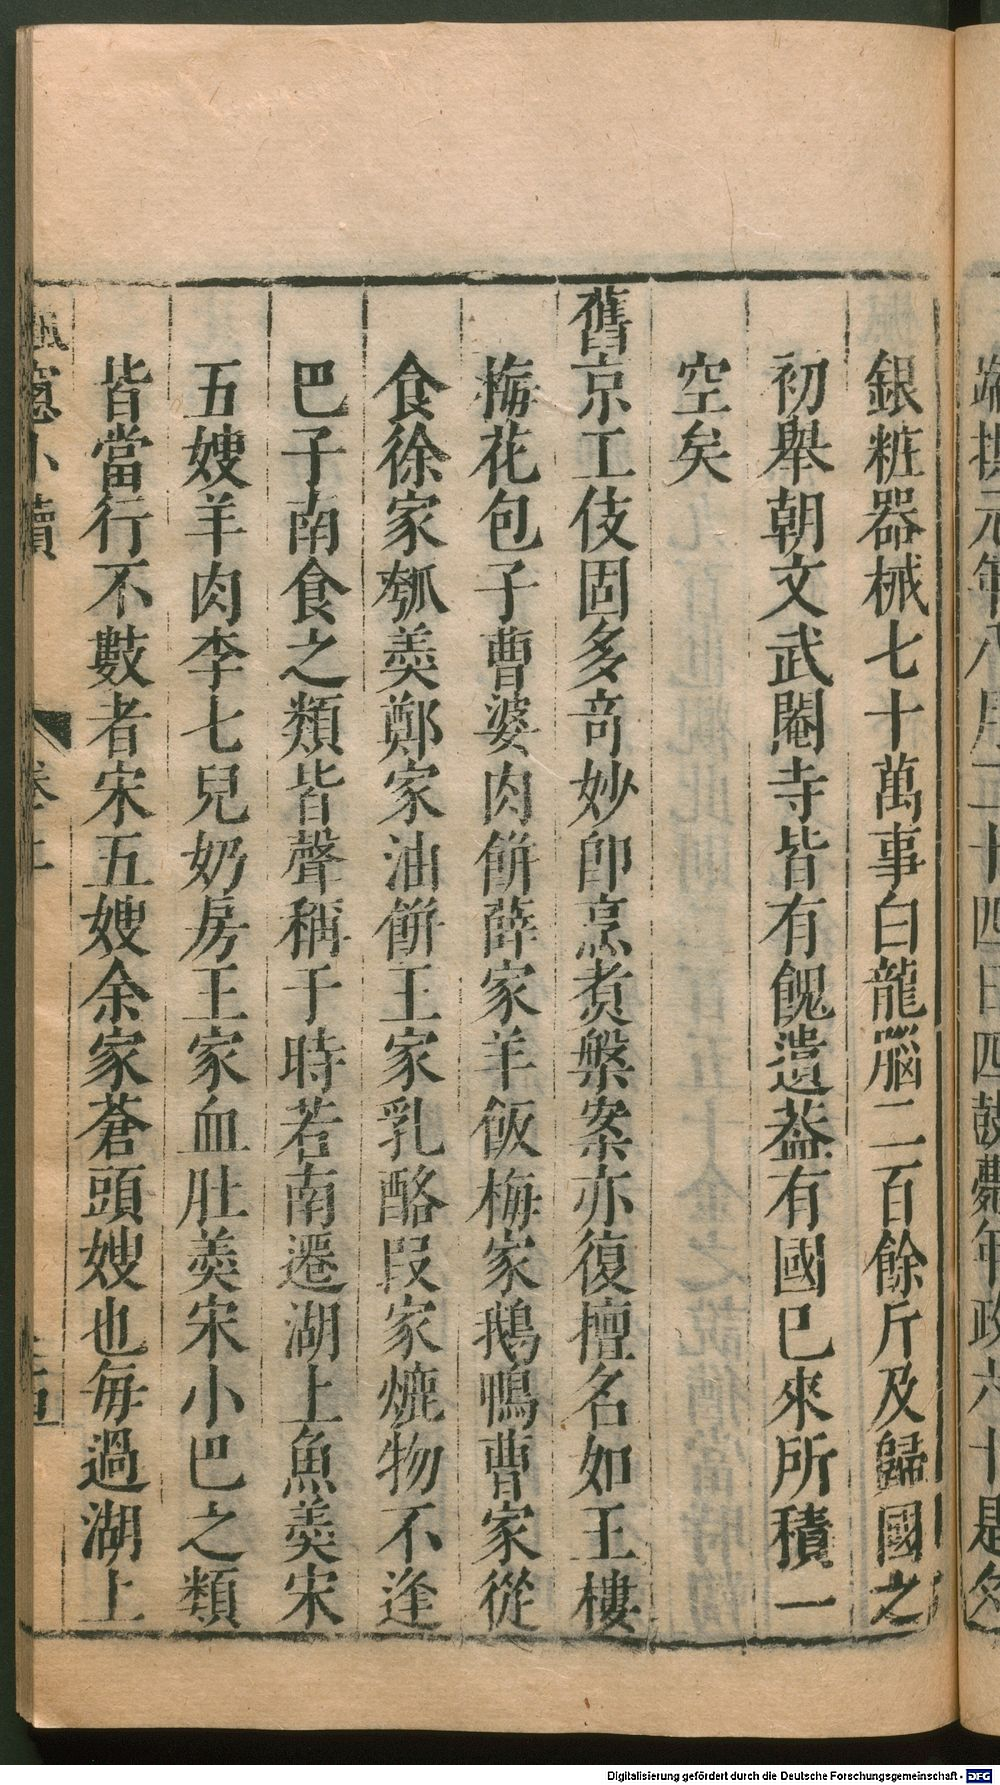 銀粧器械七十萬事白龍腦二百餘斤及歸國之
初舉朝文武閹寺皆有餽遺葢有國已來所積一
空矣
舊京工伎固多奇妙卽烹煑槃案亦復擅名如王樓
梅花包子曹婆肉餅薛家羊飯梅家鵝鴨曹家從
食徐家瓠羹鄭家油餅王家乳酪叚家熝物不逢
巴子南食之類皆聲稱于時若南遷湖上魚羹宋
五嫂羊肉李七兒奶房王家血肚羹宋小巴之類
皆當行不數者宋五嫂余家蒼頭嫂也每過湖上
楓窻小牘
卷上
Digitalisierung gefördert durch die Deutsche Forschungsgemeinschaft - DFG